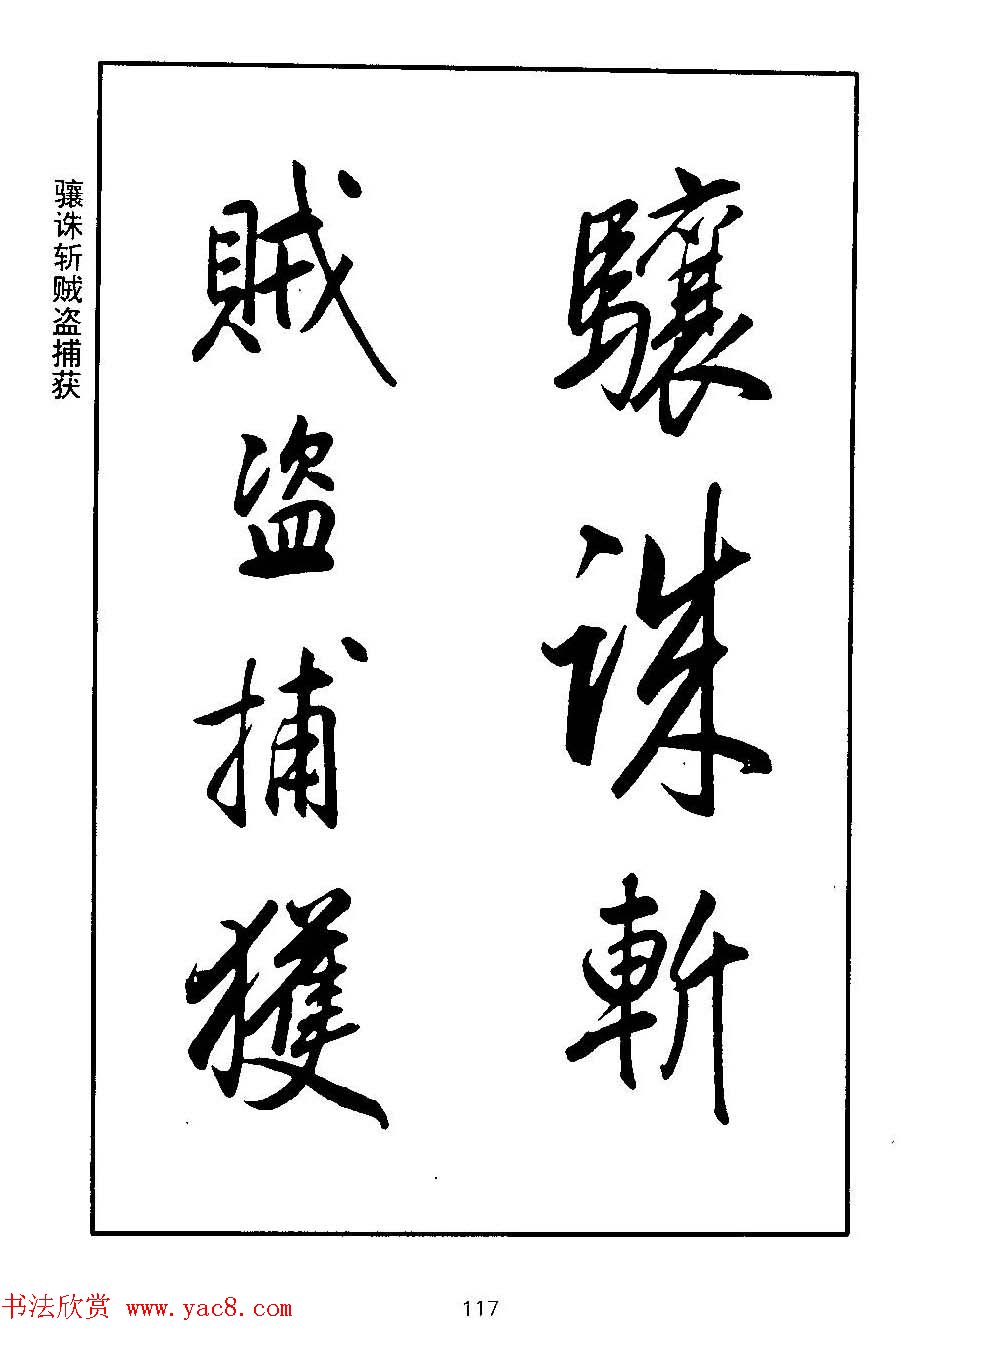 驤誅斬
賊盗捕獲
骧诛斩贼盗捕获
书法欣赏 www.yac8.com
117